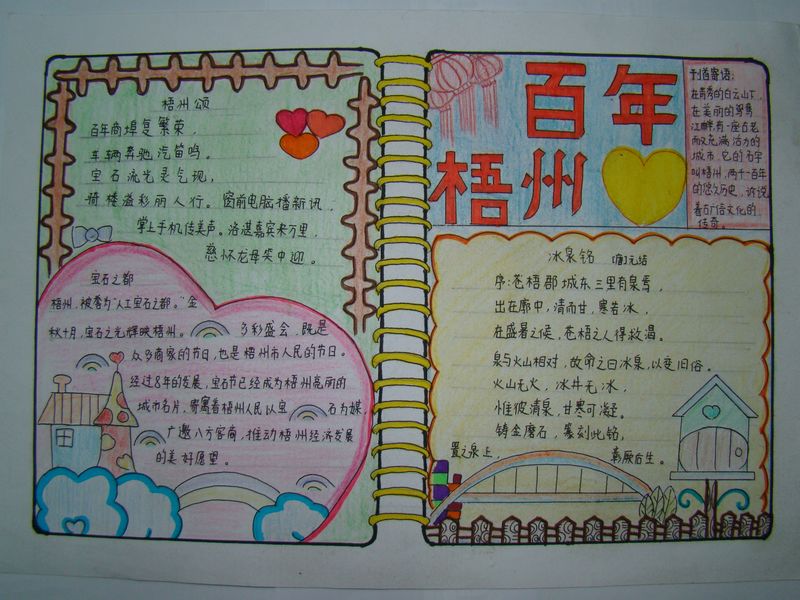 梧州颂
百年商埠复繁荣，
车辆奔驰汽笛鸣。
宝石流光灵气现，
骑楼溢彩丽人行。窗前电脑播新讯，
掌上手机传美声。洛湛嘉宾来万里，
慈怀龙母笑中迎。
宝石之都
梧州，被誉为“人工宝石之都。”金
秋十月，宝石之光辉映梧州。多彩盛会，既是
众多商家的节日，也是梧州市人民的节日。
经过8年的发展，宝石节已经成为梧州亮丽的
城市名片，寄寓着梧州人民以宝石为媒，
广邀八方客商，推动梧州经济发展
的美好愿望。
百年
梧州
刊首寄语：
在青秀的白云山下，
在美丽的鸳鸯
江畔，有一座古老
而又充满活力的
城市，它的名字
叫梧州，两千一百年
的悠久历史，诉说
着古广信文化的
传奇。
冰泉铭 (唐)元结
序：苍梧郡城东二三里有泉焉，
出在廓中，清而甘，寒若冰，
在盛暑之候，苍梧之人得救渴。
泉与火山相对，故命之曰冰泉，以变旧俗。
火山无火，冰井无冰，
惟彼清泉，甘寒可凝。
铸金磨石，篆刻此铭，
置之泉上，彰厥后生。